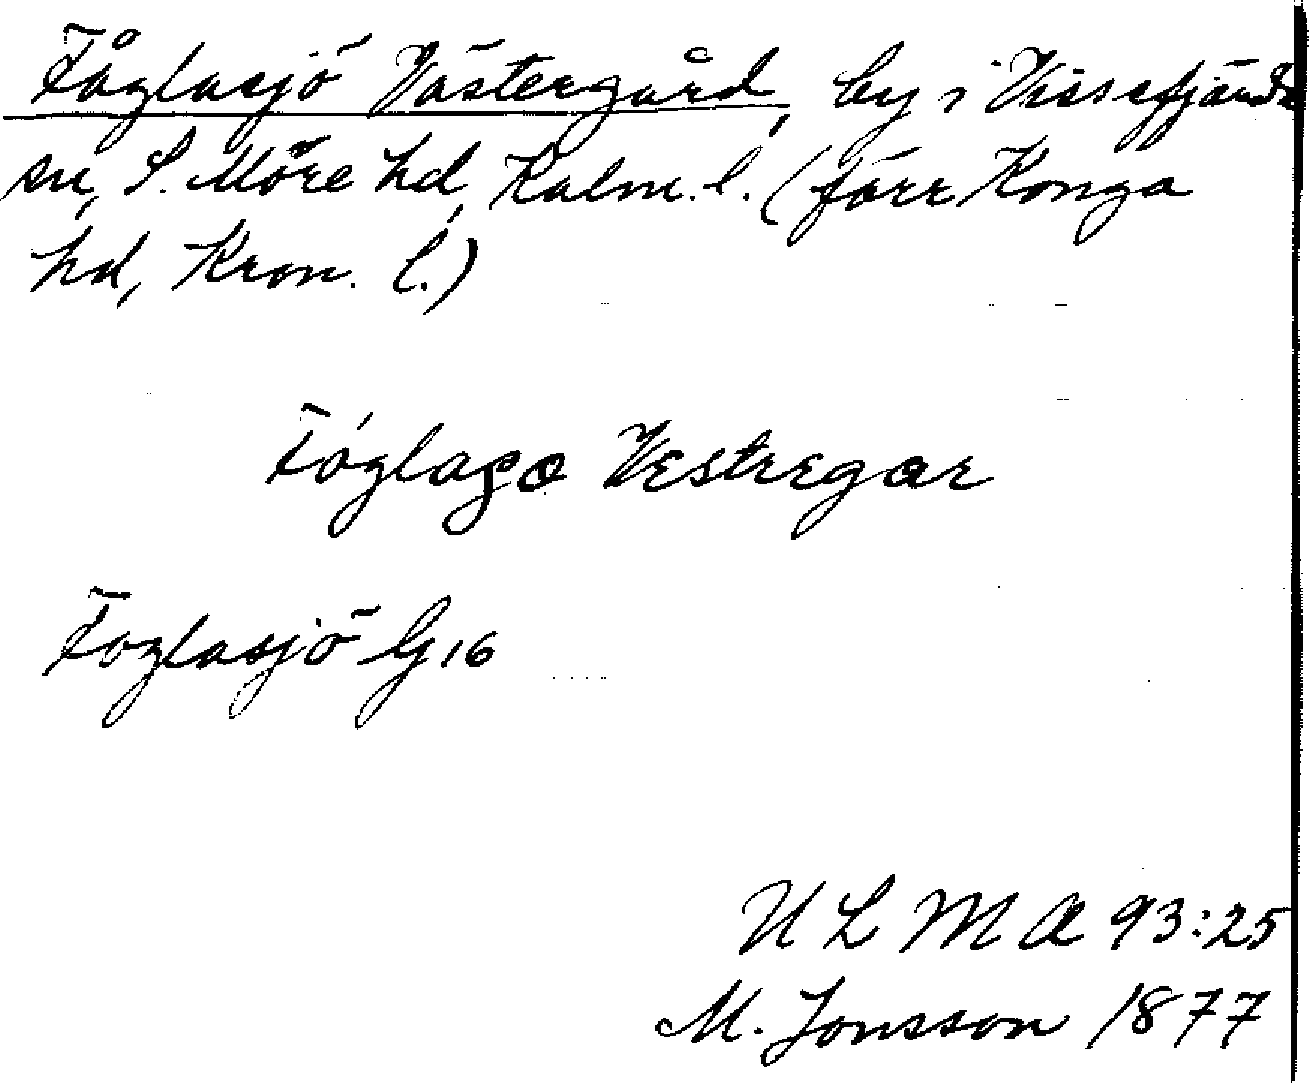 Fåglasjö Västergård, by i Vissefjärda
sn, S. Möre hd, Kalm. l. (förr Konga
hd, Kron. l.)
Fóglaʂo Vestregar
Foglasjö G16
ULMA 93:25
M. Jonsson 1877